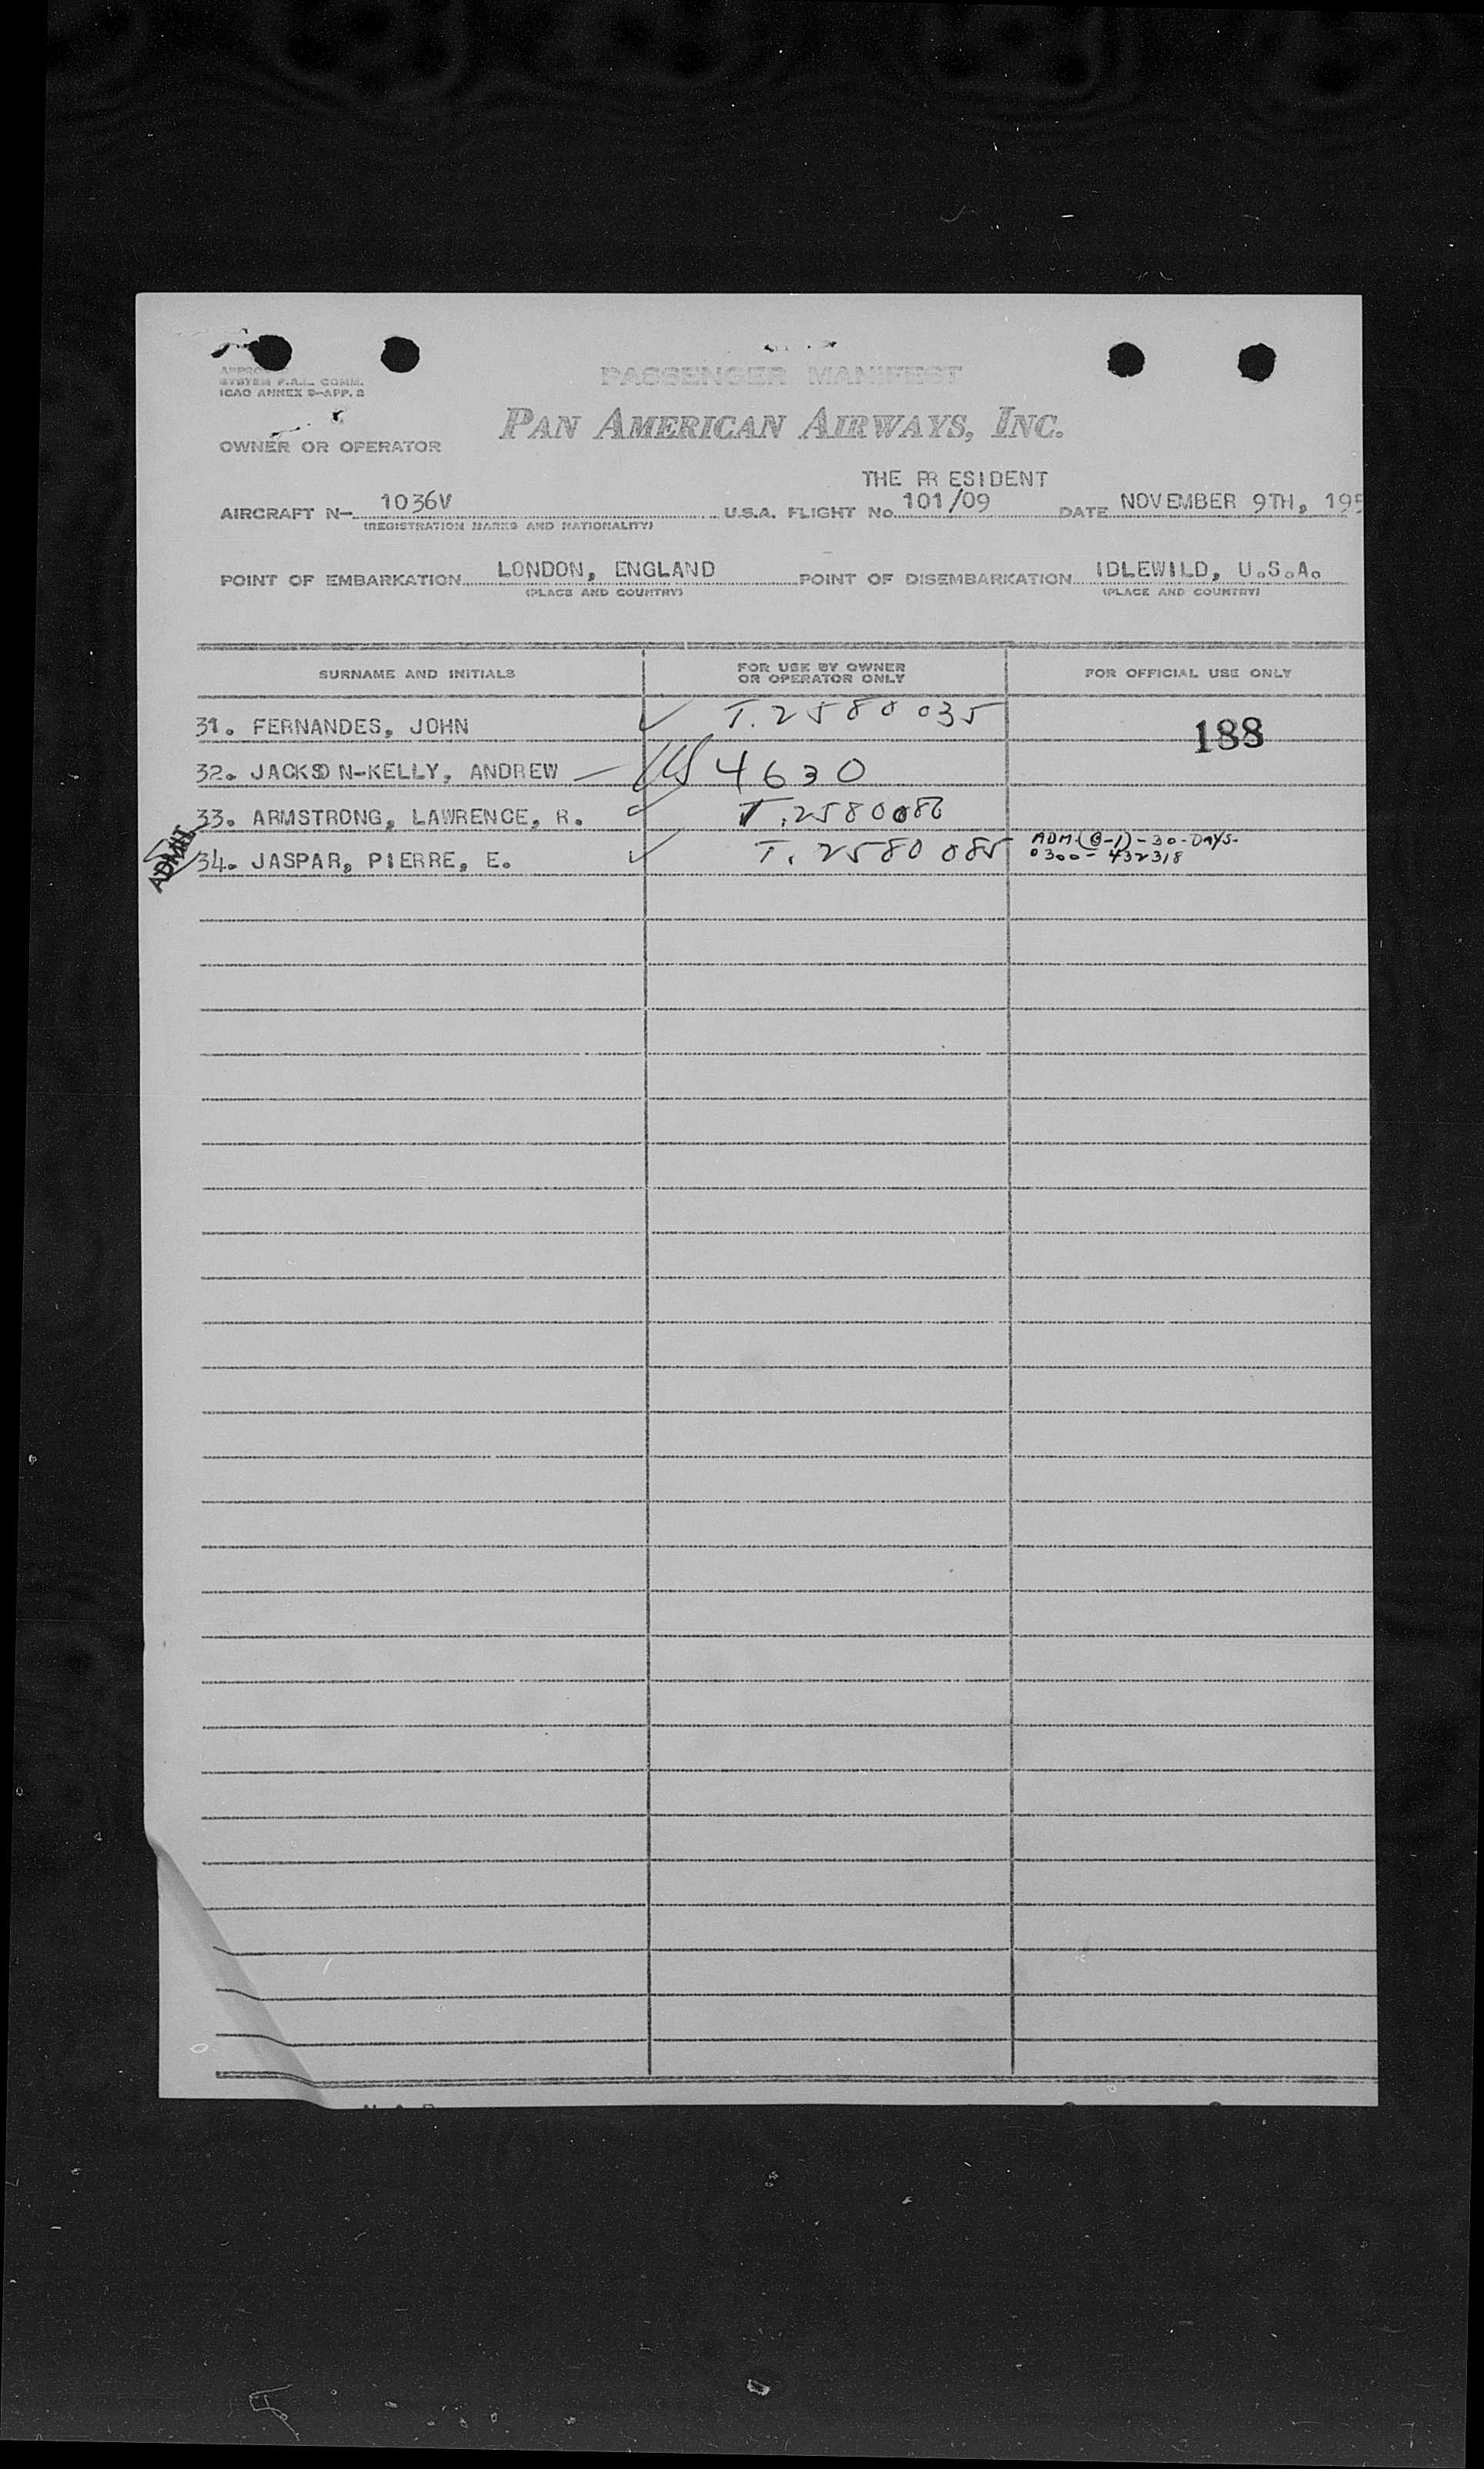 APPROVED
SYSTEM F.A.L. COMM.
ICAO ANNEX 9-APP. 2
PASSENGER MANIFEST
OWNER OR OPERATOR PAN AMERICAN AIRWAYS, INC.
THE PR ESIDENT
AIRCRAFT N- 1036V U.S.A. FLIGHT No. 101/09 DATE NOVEMBER 9TH, 195
(REGISTRATION MARKS AND NATIONALITY)
POINT OF EMBARKATION LONDON, ENGLAND POINT OF DISEMBARKATION IDLEWILD, U.S.A.
(PLACE AND COUNTRY) (PLACE AND COUNTRY)
SURNAME AND INITIALS FOR USE BY OWNER OR OPERATOR ONLY FOR OFFICIAL USE ONLY
31. FERNANDES, JOHN ✓ T. 2580035 188
32. JACKSON-KELLY, ANDREW — US 4630
33. ARMSTRONG, LAWRENCE, R. T. 2580086
ADMIT 34. JASPAR, PIERRE, E. ✓ T. 2580085 ADM. (B-1) - 30 - DAYS -
0300 - 432318